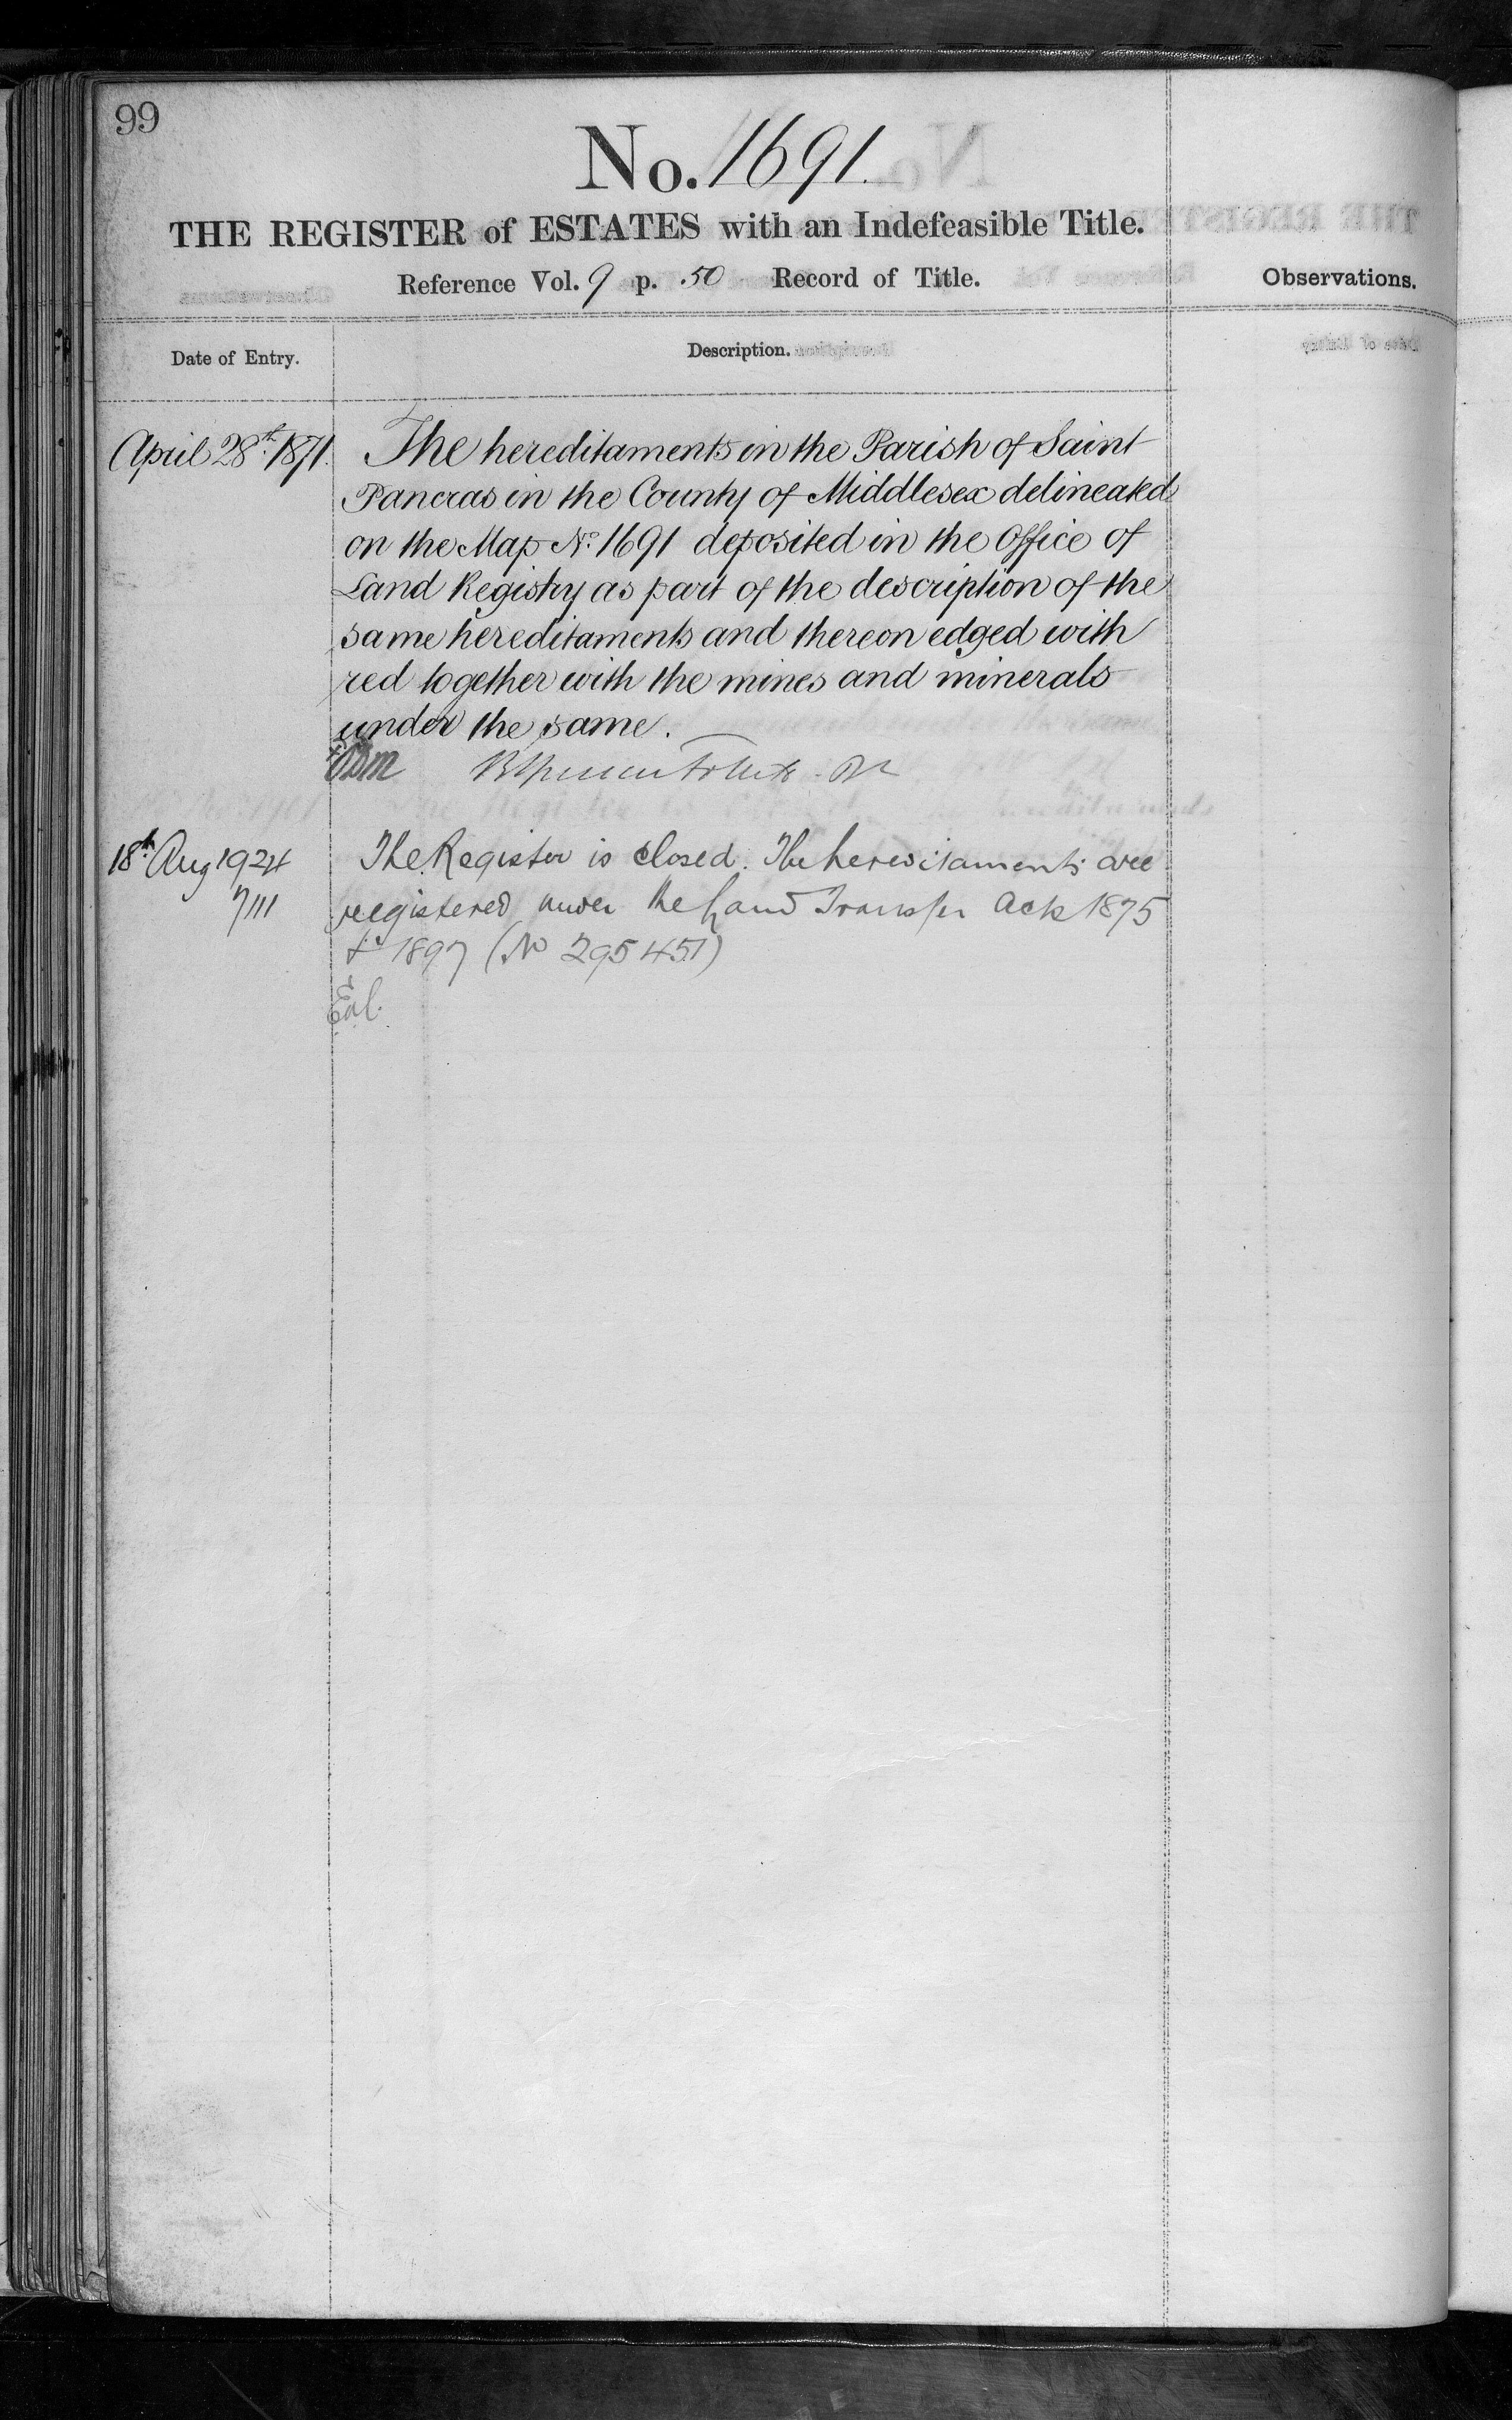 99
No. 1691.
THE REGISTER of ESTATES with an Indefeasible Title.
Reference Vol. 9 p. 50 Record of Title.
Observations.
Date of Entry.
Description.
April 28th. 1871.
The hereditaments in the Parish of Saint
Pancras in the County of Middlesex delineated
on the Map No. 1691 deposited in the Office of
Land Registry as part of the description of the
same hereditaments and thereon edged with
red together with the mines and minerals
under the same.
18th Aug 1924
7111
The Register is closed. The hereditaments are
registered under the Land Transfer Acts 1875
& 1897 (No 295451)